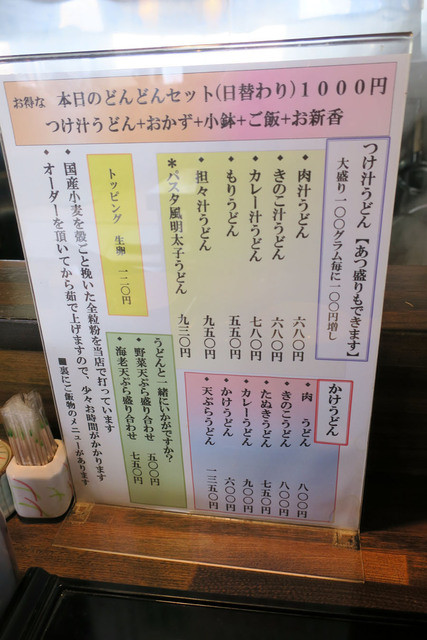 お得な 本日のどんどんセット(日替わり)1000円
つけ汁うどん+おかず+小鉢+ご飯+お新香
つけ汁うどん【あつ盛りもできます】
大盛り一〇〇グラム毎に一〇〇円増し
・肉汁うどん 六八〇円
・きのこ汁うどん 六八〇円
・カレー汁うどん 七八〇円
・もりうどん 五五〇円
・担々汁うどん 九五〇円
*パスタ風明太子うどん 九三〇円
トッピング 生卵 一二〇円
かけうどん
・肉 うどん 八〇〇円
・きのこうどん 八〇〇円
・たぬきうどん 七五〇円
・カレーうどん 九〇〇円
・かけうどん 六〇〇円
・天ぷらうどん 一三五〇円
うどんと一緒にいかがですか?
・野菜天ぷら盛り合わせ 五〇〇円
・海老天ぷら盛り合わせ 七五〇円
・国産小麦を殻ごと挽いた全粒粉を当店で打っています
・オーダーを頂いてから茹で上げますので、少々お時間がかかります
■裏にご飯物のメニューがあります